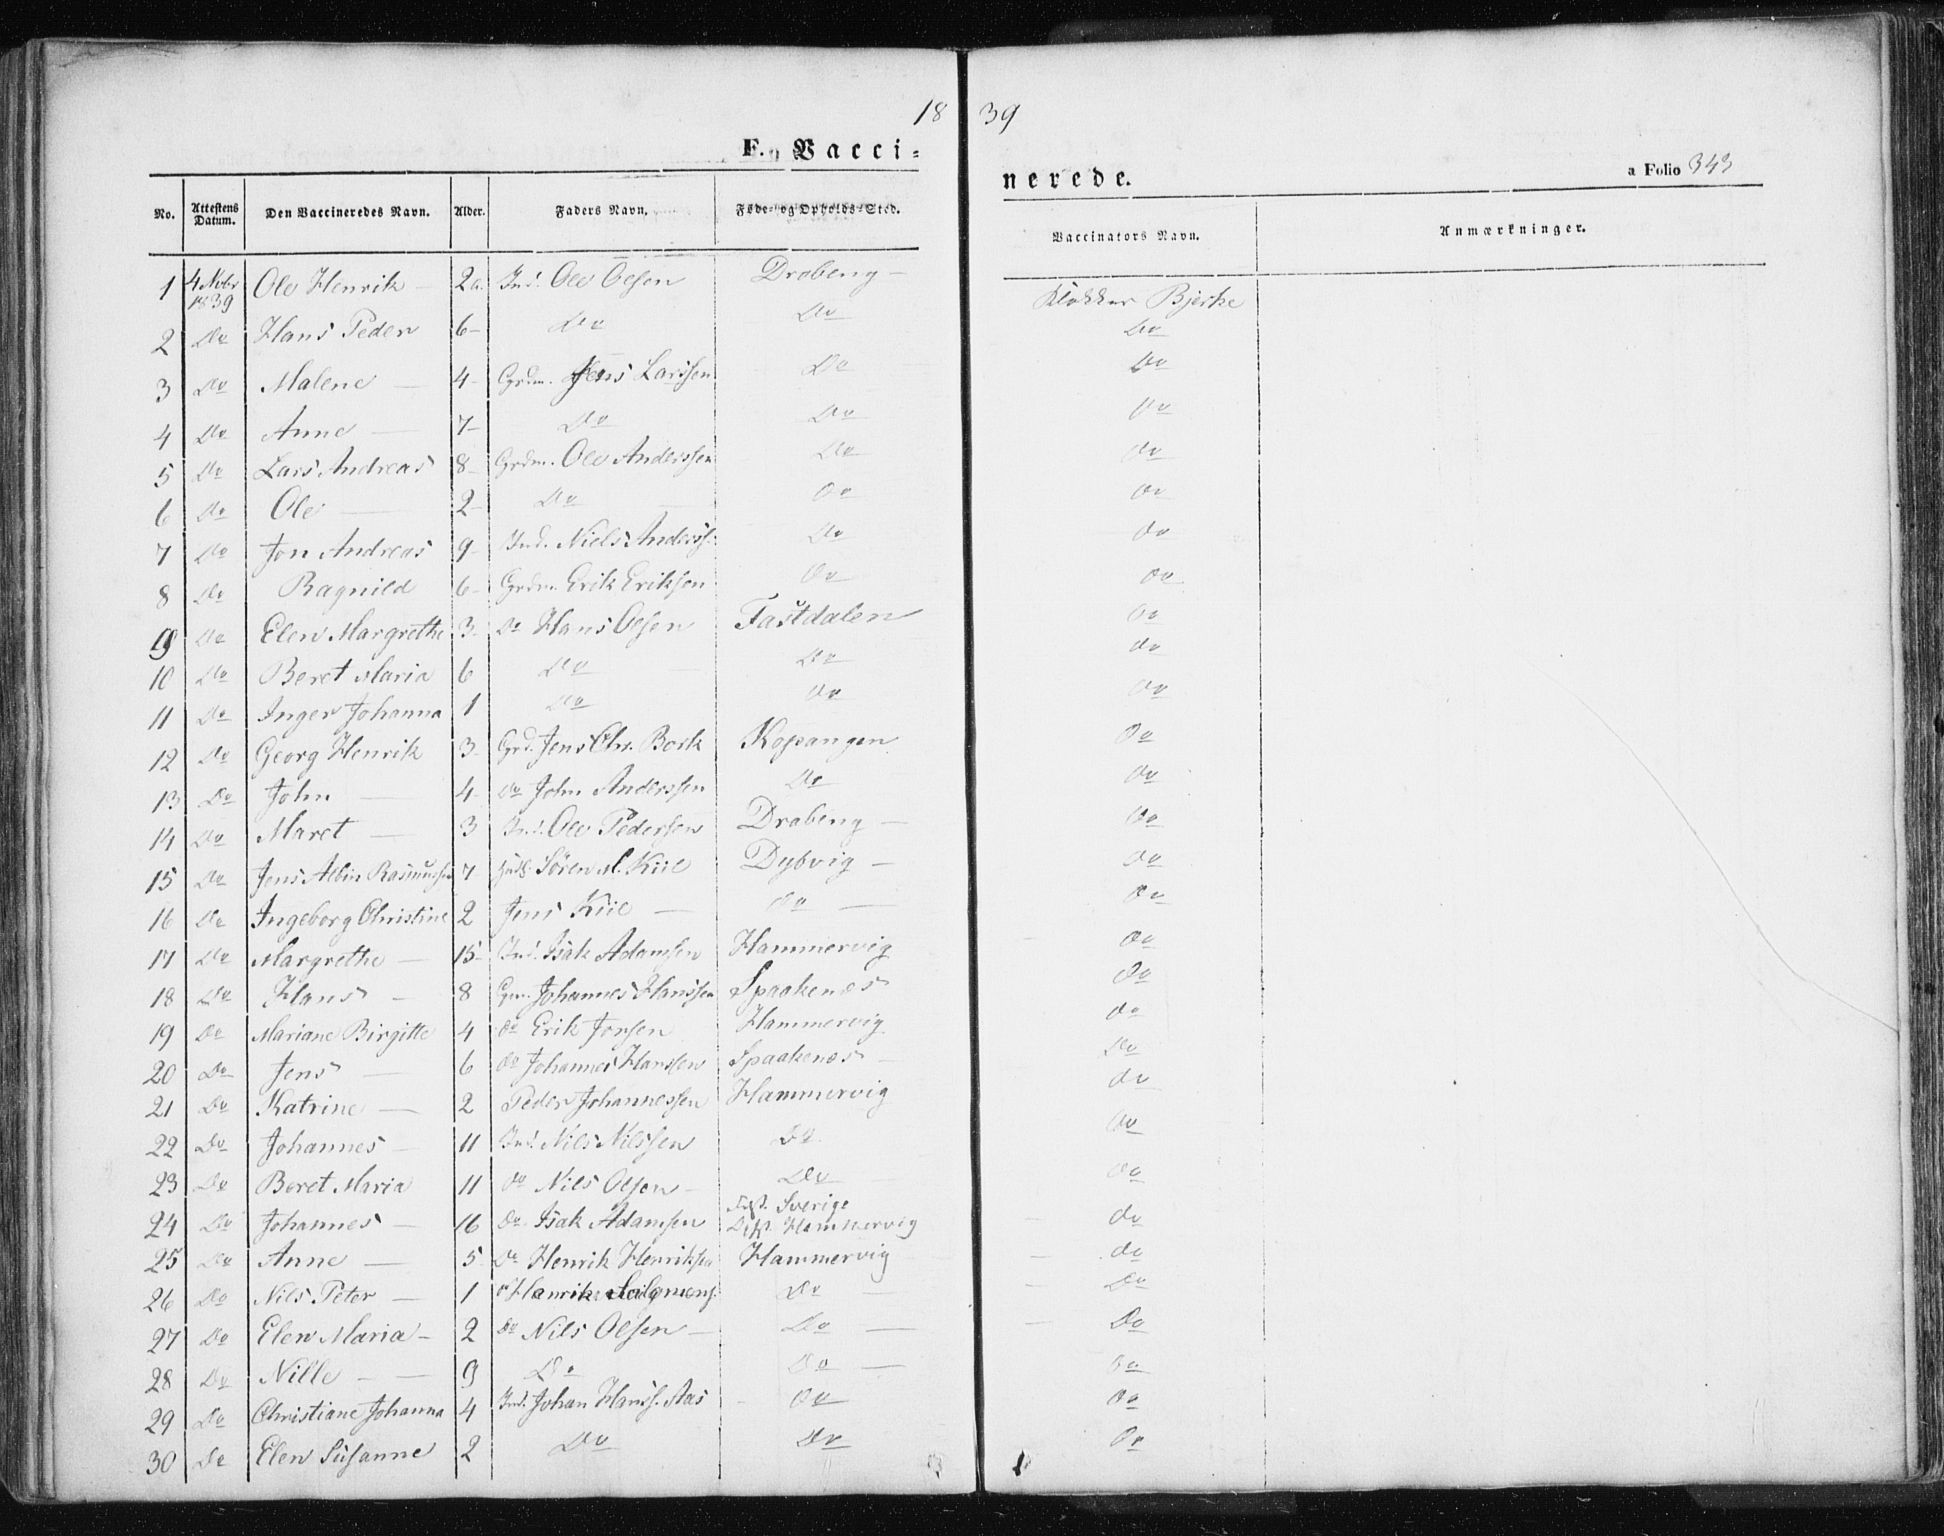 18 39
F. Vacci=
nerede.
a Folio 343
No. Attestens Datum. Den Vaccineredes Navn. Alder. Faders Navn. Føde- og Opholds-Sted. Vaccinators Navn. Anmærkninger.
1 4 Nvbr 1839 Ole Henrik 2 a. Ind. Ole Olsen Drabeng Klokker Bjerke
2 Do Hans Peder 6 Do Do Do
3 Do Malene 4 Grdm. Jens Larssen Do Do
4 Do Anne 7 Do Do Do
5 Do Lars Andreas 8 Grdm. Ole Anderssen Do Do
6 Do Ole 2 Do Do Do
7 Do Jon Andreas 9 Ind. Niels Anderss. Do Do
8 Do Ragnild 6 Grdm. Erik Eriksen Do Do
9 Do Elen Margrethe 3 Do Hans Olsen Fastdalen Do
10 Do Beret Maria 6 Do Do Do
11 Do Inger Johanna 1 Do Do Do
12 Do Georg Henrik 3 Grd. Jens Chr. Bork Kopangen Do
13 Do John 4 do John Anderssen Do Do
14 Do Maret 3 Ind. Ole Pedersen Drabeng Do
15 Do Jens Albin Rasmussen 7 Søren M. Kiil Dybvig Do
16 Do Ingeborg Christine 2 Jens Kiil Do Do
17 Do Margrethe 15 Ind. Isak Adamsen Hammervig Do
18 Do Hans 8 Gm. Johannes Hanssen Spaakenes Do
19 Do Mariane Birgitte 4 do Erik Jonsen Hammervig Do
20 Do Jens 6 do Johannes Hanssen Spaakenes Do
21 Do Katrine 2 Peder Johannessen Hammervig Do
22 Do Johannes 11 Ind. Nils Nilssen Do Do
23 Do Beret Maria 11 do Nils Olsen Do Do
24 Do Johannes 16 Do Isak Adamsen Sverige Hammervig Do
25 Do Anne 5 Do Henrik Henriksen Hammervig Do
26 Do Nils Peter 1 do Henrik Do Do
27 Do Elen Maria 2 Do Nils Olsen Do Do
28 Do Nille 9 Do Do Do
29 Do Christiane Johanna 4 Ind. Johan Hanss. Aas Do Do
30 Do Elen Susanne 2 Do Do Do